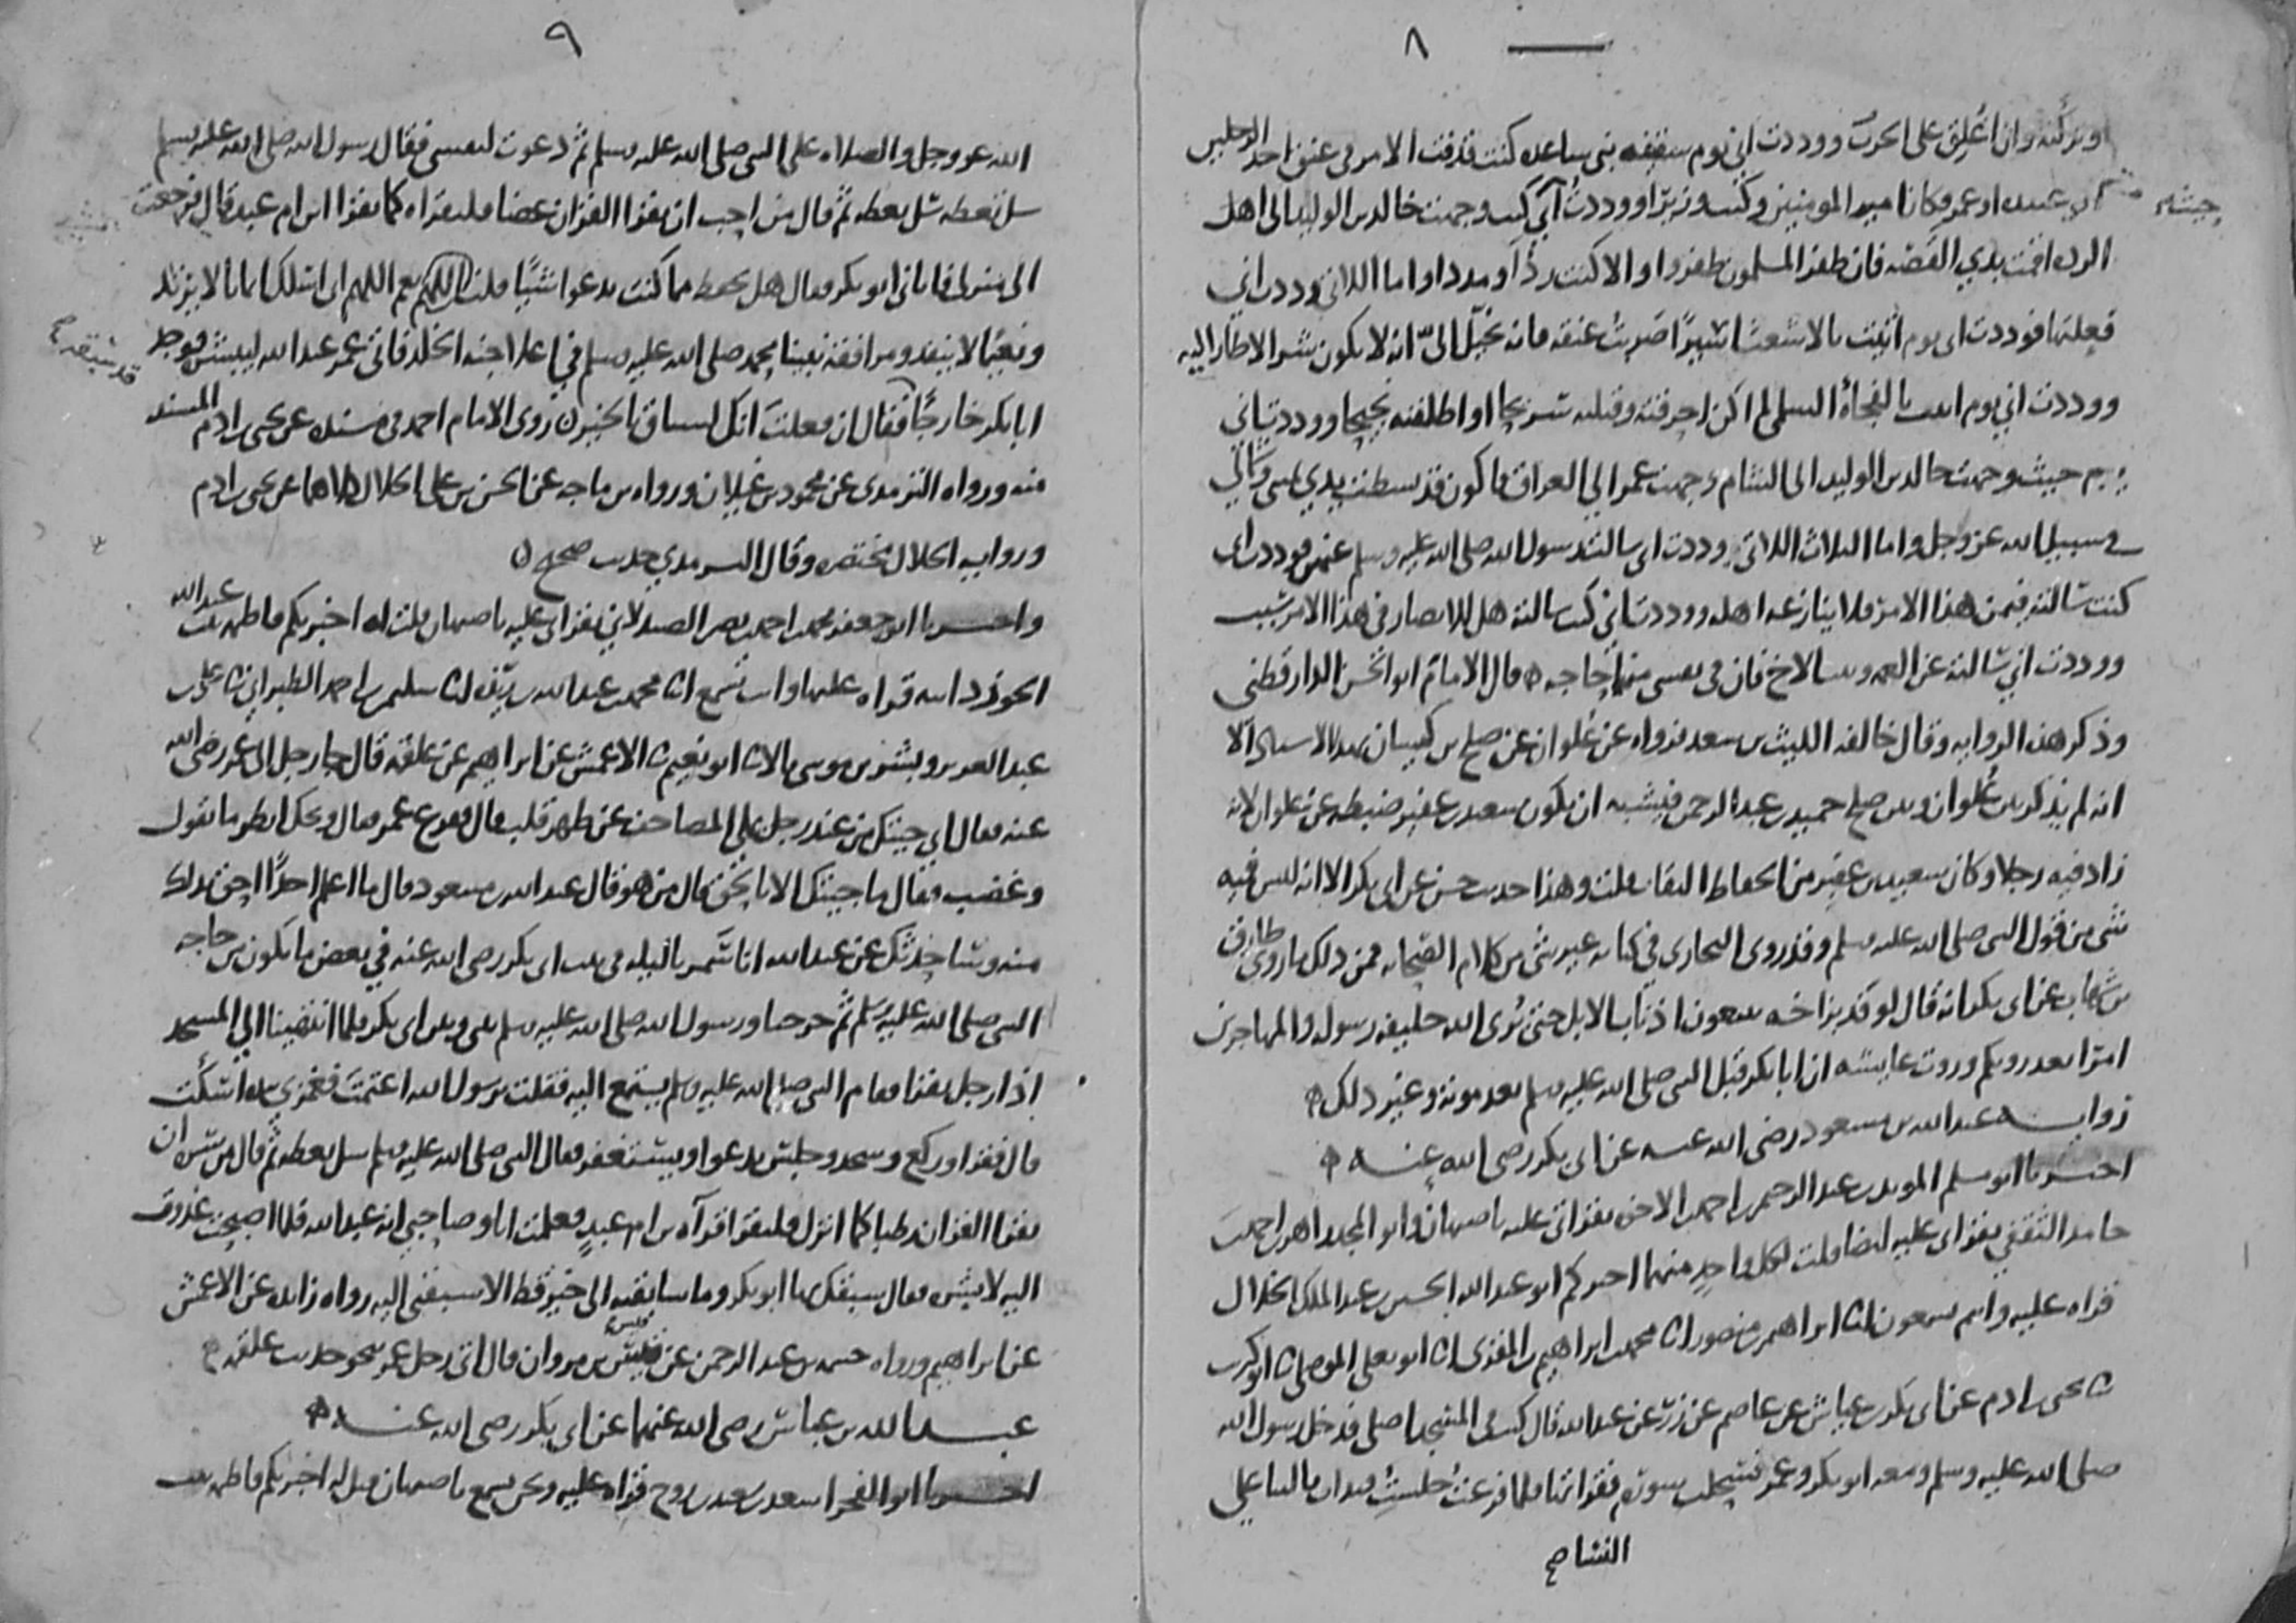 ٨
وتركته وان اغلق على الحرب ووددت اني يوم سقيفه بني ساعده كنت قذفت الامر في عنق احد الرجلين
ابي عبيده او عمر فكان امير المومنين وكنت وزيرا ووددت اني كنت وجهت خالد بن الوليد الى اهل
الرده اقمت بذي القصه فان ظفر المسلمون ظفروا والا كنت ردًا او مددا واما اللاتي وددت اني
فعلتها فوددت اني يوم اتيت بالاشعث اسيرًا ضربت عنقه فانه يخيل الى انه لا يكون شر الا طار اليه
ووددت اني يوم اتيت بالفجأة السلمي لم اكن احرقته وقتلته سريحا او اطلقته نجيحا ووددت اني
حيث وجهت خالد بن الوليد الى الشام وجهت عمر الى العراق فاكون قد بسطت يدي يميني وشمالي
في سبيل الله عز وجل واما الثلاث اللاتي وددت اني سالت رسول الله صلى الله عليه وسلم عنهن فوددت اني
كنت سالته فيمن هذا الامر فلا ينازعه اهله ووددت اني كنت سالته هل للانصار في هذا الامر سبب
ووددت اني سالته عن العمه وبنت الاخ فان في نفسي منها حاجه قال الامام ابو الحسن الدارقطني
وذكر هذه الروايه وقال خالفه الليث بن سعد فرواه عن علوان عن صالح بن كيسان بهذا الاسناد الا
انه لم يذكر بين علوان وبين صالح حميد بن عبد الرحمن فيشبه ان يكون سعيد بن عفير ضبطه عن علوان لانه
زاد فيه رجلا وكان سعيد بن عفير من الحفاظ الثقات قلت وهذا حديث حسن عن ابي بكر الا انه ليس فيه
شي من قول النبي صلى الله عليه وسلم وقد روى البخاري في كتابه غير شي من كلام الصحابه فمن ذلك ما روى طارق
بن شهاب عن ابي بكر انه قال لوفد بزاخه تتبعون اذناب الابل حتى يُرى الله خليفه رسوله والمهاجرين
امرا يعذرونكم وروت عايشه ان ابا بكر قبل النبي صلى الله عليه وسلم بعد موته وغير ذلك
روايه عبد الله بن مسعود رضي الله عنه عن ابي بكر رضي الله عنه
اخبرنا ابو مسلم المويد بن عبد الرحيم بن احمد بن الاخوه بقراتي عليه باصبهان وابو المجد زاهر بن احمد بن
حامد الثقفي بقراتي عليه ايضا قلت لكل واحد منهما اخبركم ابو عبد الله الحسين بن عبد الملك الخلال
قراه عليه وانتم تسمعون انا ابراهيم بن منصور انا محمد بن ابراهيم بن المقري انا ابو يعلى الموصلي نا ابو كريب
نا يحيى بن ادم عن ابي بكر بن عياش عن عاصم عن زر عن عبد الله قال كنت في المسجد اصلي فدخل رسول الله
صلى الله عليه وسلم ومعه ابو بكر وعمر فسحلت سوره فقراتها فلما فرغت جلست فبدات بالثنا على
٩
الله عز وجل والصلاه على النبي صلى الله عليه وسلم ثم دعوت لنفسي فقال رسول الله صلى الله عليه وسلم
سل تعطه سل تعطه ثم قال من احب ان يقرا القران غضا فليقراه كما يقرا ابن ام عبد قال فرجعت
الى منزلي فاتاني ابو بكر فقال هل تحفظ مما كنت تدعوا شيًا قلت اللهم نعم اللهم اني اسلك ايمانا لا يرتد
ونعيمًا لا ينفد ومرافقه نبينا محمد صلى الله عليه وسلم في اعلا جنه الخلد فاتى عمر عبد الله ليبشره فوجد
ابا بكر خارجًا فقال ان فعلت انك لسباق بالخير روى الامام احمد في مسنده عن يحيى بن ادم المسند
منه ورواه الترمذي عن محمود بن غيلان ورواه بن ماجه عن الحسن بن علي الخلال كلاهما عن يحيى بن ادم
وروايه الخلال مختصره وقال الترمذي حديث صحيح
واخبرنا ابو جعفر محمد بن احمد بن نصر الصيدلاني بقراتي عليه باصبهان قلت له اخبرتكم فاطمه بنت عبد الله
الجوزدانيه قراه عليها وانت تسمع انا محمد بن عبد الله بن ريذه انا سليمن بن احمد الطبراني نا علي بن
عبد العزيز وبشر بن موسى قالا نا ابو نعيم نا الاعمش عن ابراهيم عن علقمه قال جا رجل الى عمر رضي الله
عنه فقال اني جيتك من عند رجل يملي المصاحف عن ظهر قلب قال ففزع عمر فقال ويحك انظر ما تقول
وغضب فقال ما جيتك الا بالحق قال من هو قال عبد الله بن مسعود قال ما اعلم احدًا احق بذلك
منه وساحدثك عن عبد الله انا سمرنا ليله في بيت ابي بكر رضي الله عنه في بعض ما يكون من حاجه
النبي صلى الله عليه وسلم ثم خرجنا ورسول الله صلى الله عليه وسلم بيني وبين ابي بكر فلما انتهينا الى المسجد
اذا رجل يقرا فقام النبي صلى الله عليه وسلم يستمع اليه فقلت يرسول الله اعتمت فغمزني بيده اسكت
قال فقرا وركع وسجد وجلس يدعوا ويستغفر فقال النبي صلى الله عليه وسلم سل تعطه ثم قال من سره ان
يقرا القران رطبا كما انزل فليقرا قرآه بن ام عبد فعلمت انا وصاحبي انه عبد الله فلما اصبحت غدوت
اليه لابشره فقال سبقك بها ابو بكر وما سابقته الى خير قط الا سبقني اليه رواه زايده عن الاعمش
عن ابراهيم ورواه خيثمه بن عبد الرحمن عن قيس بن مروان قال اتى رجل عمر نحو حديث علقمه
عبد الله بن عباس رضي الله عنهما عن ابي بكر رضي الله عنه
اخبرنا ابو الفخر اسعد بن سعيد بن روح قراه عليه ونحن نسمع باصبهان قيل له اخبرتكم فاطمه بنت